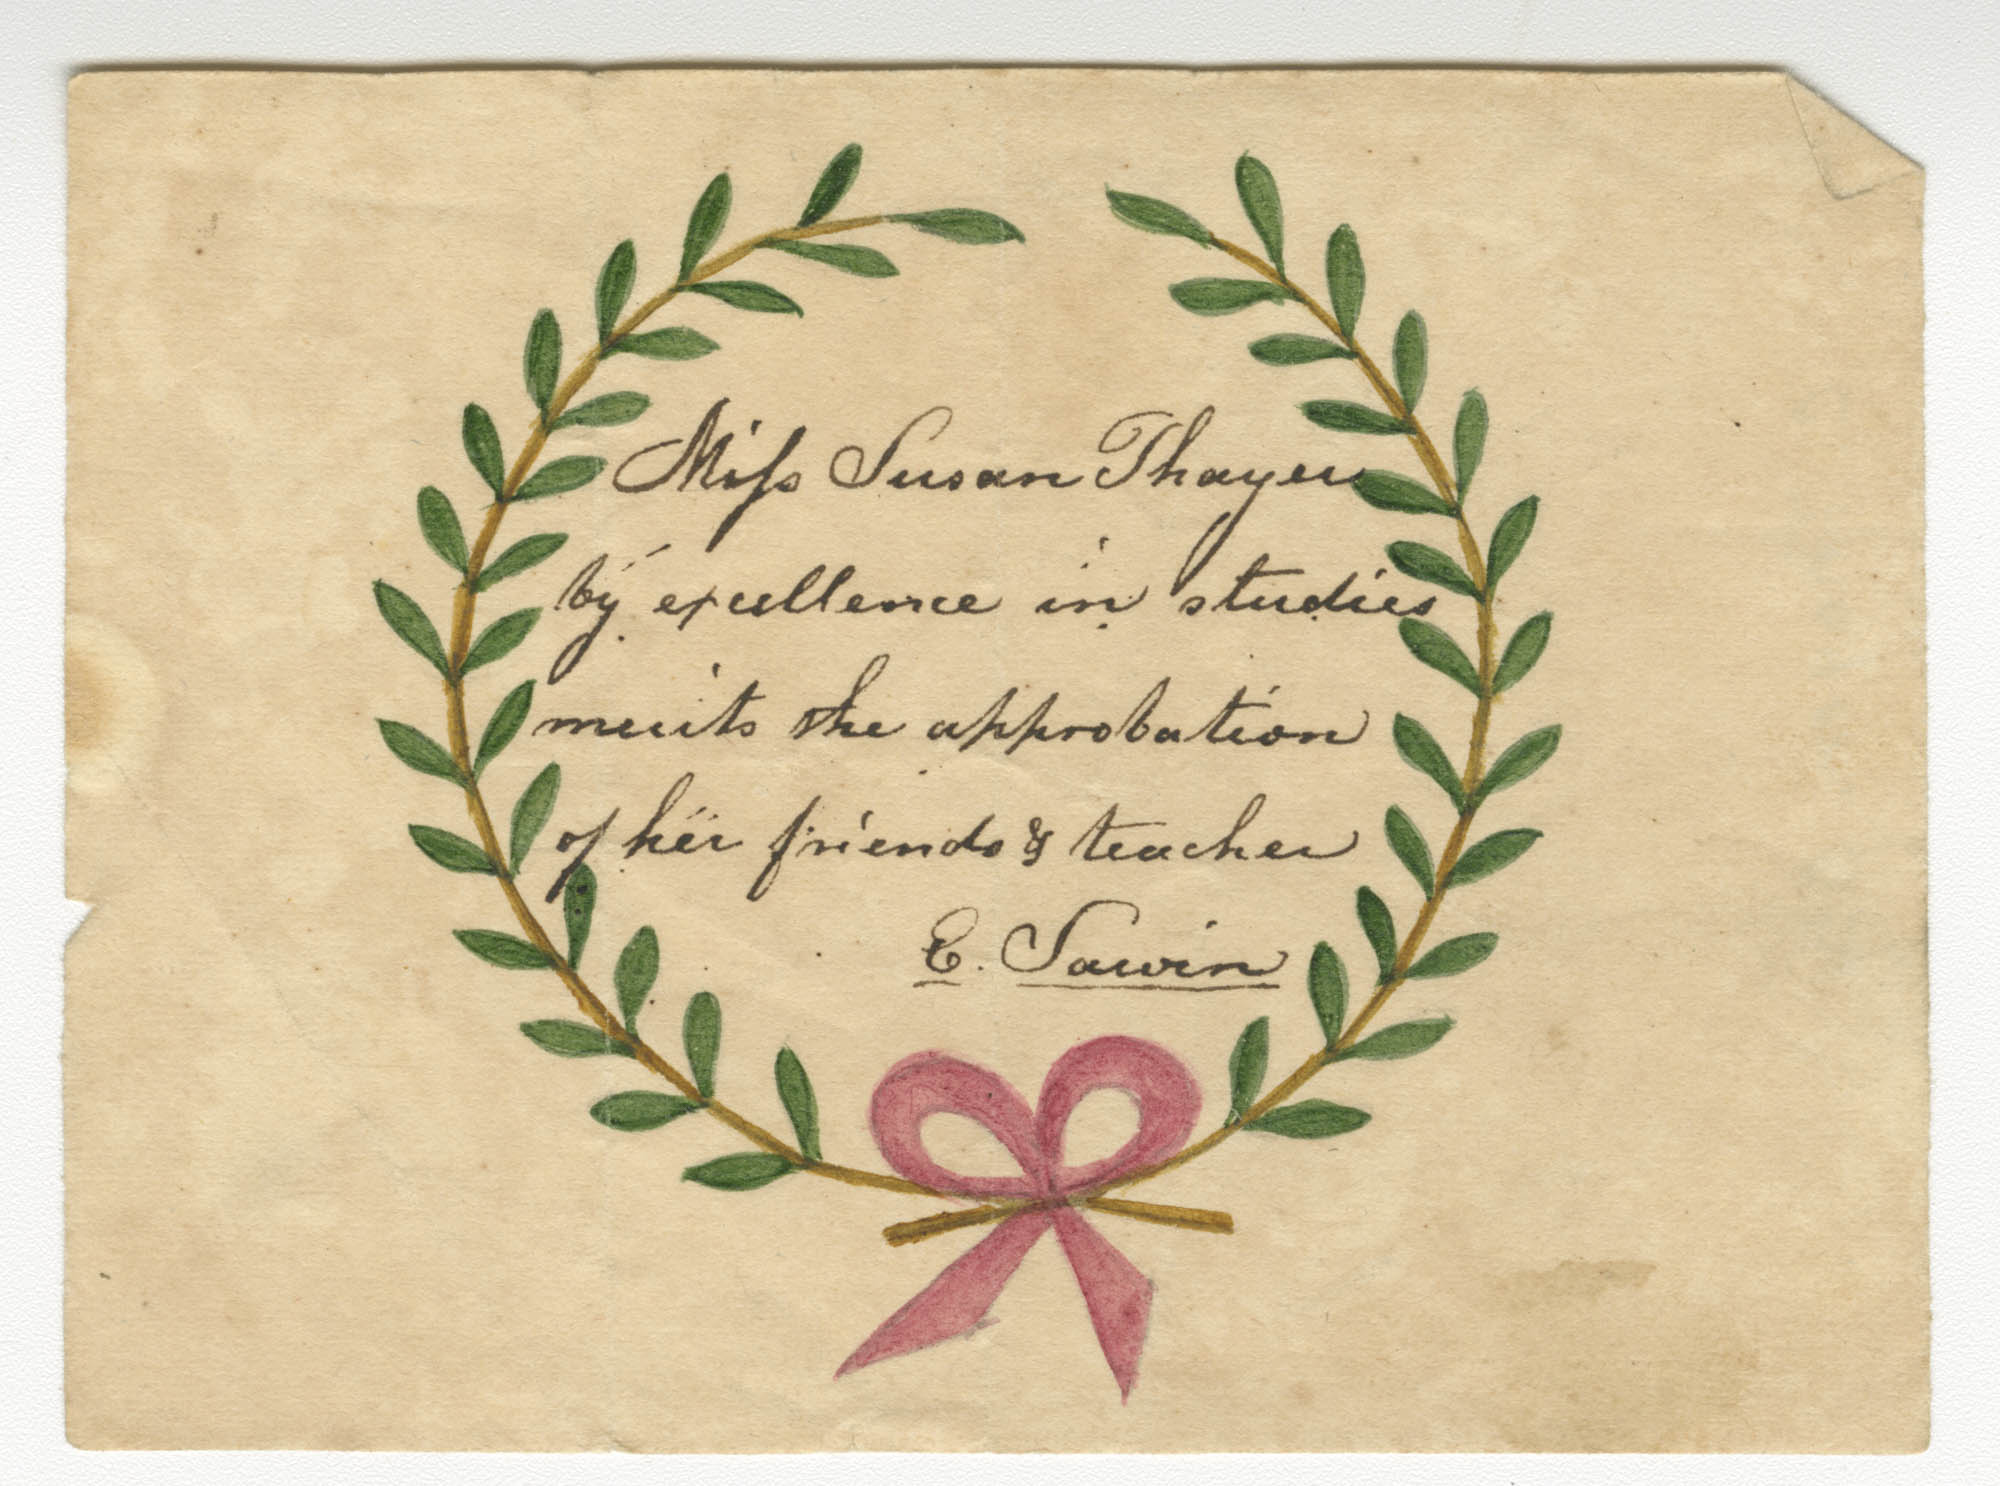 Miſs Susan Thayer
by excellence in studies
merits the approbation
of her friends & teacher
E. Sawin